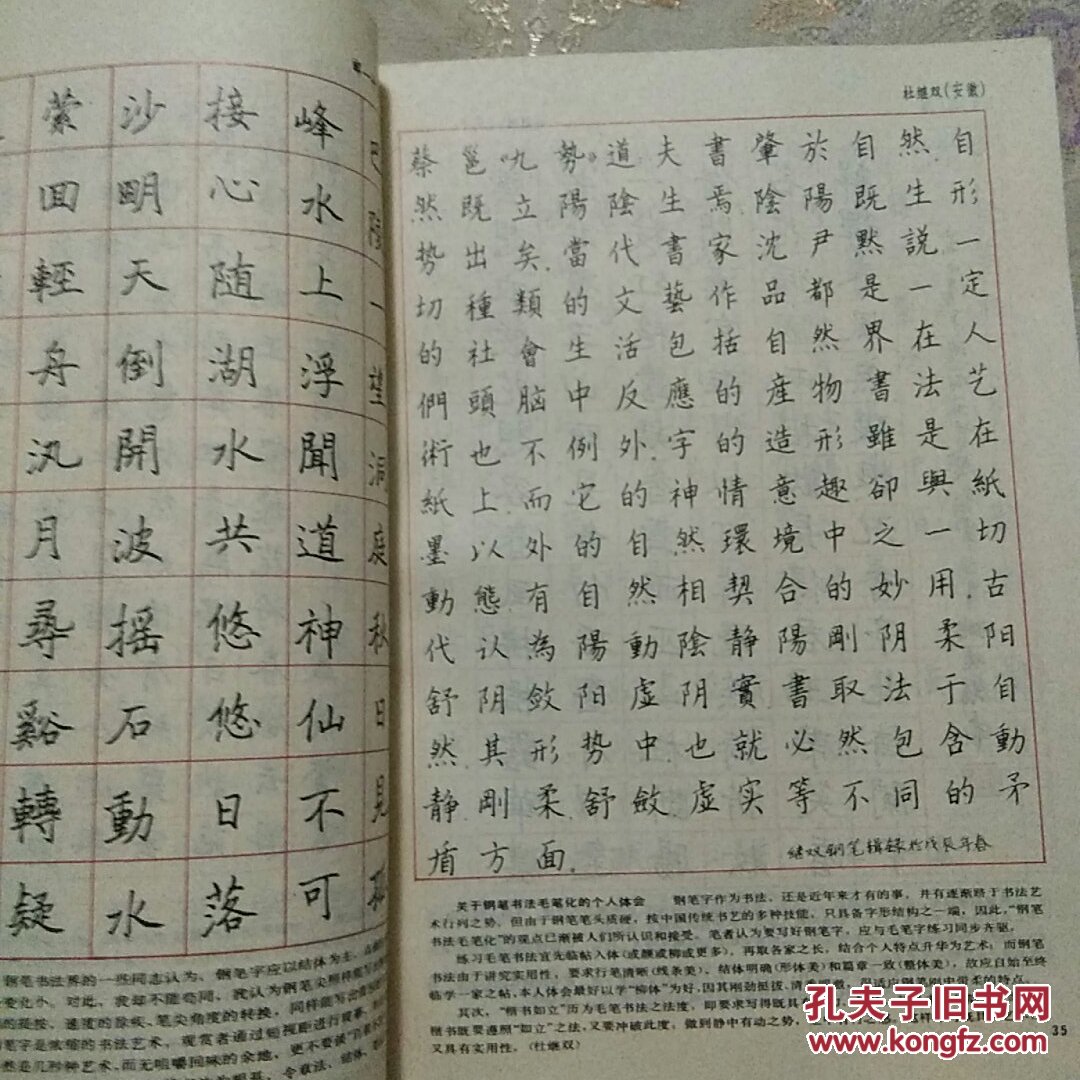 峰水上浮聞道神仙不可
接心随湖水共悠悠日落
沙明天倒開波摇石動水
萦回輕舟汎月尋谿轉疑
望洞庭秋日見
杜继双(安徽)
蔡邕《九勢》道夫書肇於自然.自
然既立陽陰生焉.陰陽既生形
势出矣.當代書家沈尹黙説一
切種類的文藝作品都是一定
的社會生活包括自然界在人
們頭脑中反應的産物書法艺
術也不例外.字的造形雖是在
紙上.而它的神情意趣卻與紙
墨以外的自然環境中之一切
動態.有自然相契合的妙用.古
代认為陽動陰静陽剛阴柔阳
舒阴斂阳虚阴實書取法于自
然.其形势中也就必然包含動
静.剛柔.舒斂.虚实等不同的矛
盾方面.
继双钢笔辑録於戊辰年春
关于钢笔书法毛笔化的个人体会 钢笔字作为书法，还是近年来才有的事，并有逐渐跻于书法艺
术行列之势，但由于钢笔笔头质硬，按中国传统书艺的多种技能，只具备字形结构之一端，因此，“钢笔
书法毛笔化”的观点已渐被人们所认识和接受。笔者认为要写好钢笔字，应与毛笔字练习同步齐驱。
练习毛笔书法宜先临帖入体(或颜或柳或更多)，再取各家之长，结合个人特点升华为艺术；而钢笔
书法由于讲究实用性，要求行笔清晰(线条美)、结体明确(形体美)和篇章一致(整体美)，故应自始至终
临学一家之帖，本人体会最好以学“柳体”为好，因其刚劲挺拔、清
其次，“楷书如立”历为毛笔书法之法度，即要求写得既具
楷书既要遵照“如立”之法，又要冲破此度；做到静中有动之势，
又具有实用性。(杜继双)
35
钢笔书法界的一些同志认为，钢笔字应以结体为主，
变化小。对此，我却不能苟同，我认为钢笔尖照样能写
的提按、速度的徐疾、笔尖角度的转换，同样能写出
笔字是浓缩的书法艺术，观赏者通过短视距进行观摩，
然是几秒种艺术，而无咀嚼回味的余地，更不要谈
孔夫子旧书网
www.kongfz.com